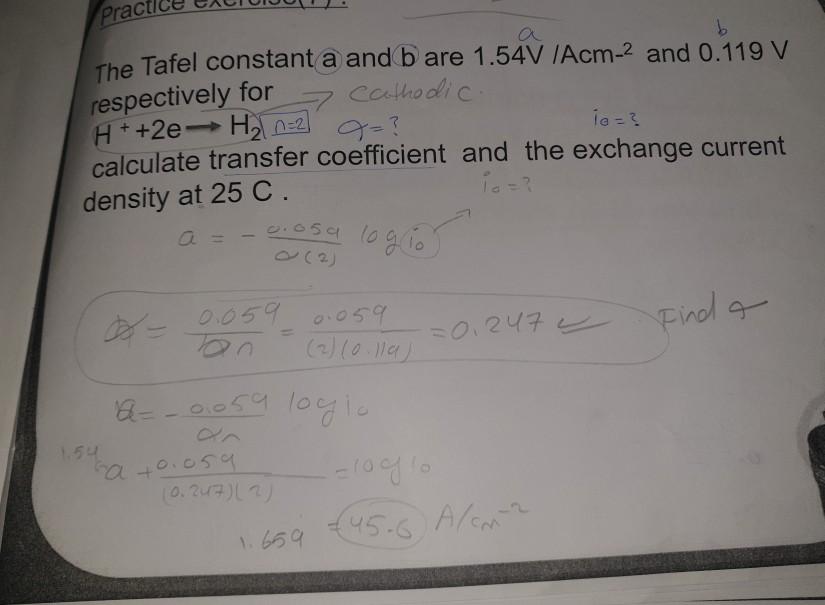 Practice exercise(7):
a b
The Tafel constant a and b are 1.54V /Acm-2 and 0.119 V
respectively for → cathodic.
H + +2e → H2 n=2 α=? i₀=?
calculate transfer coefficient and the exchange current
density at 25 C .
i₀=?
a = - 0.059 / α(2) log i₀
α = 0.059 / bn = 0.059 / (2)(0.119) = 0.247 ✓ Find α
a = - 0.059 / αn log i₀
1.54 a + 0.059 / (0.247)(2) = log i₀
1.659 = 45.6 A/cm⁻²